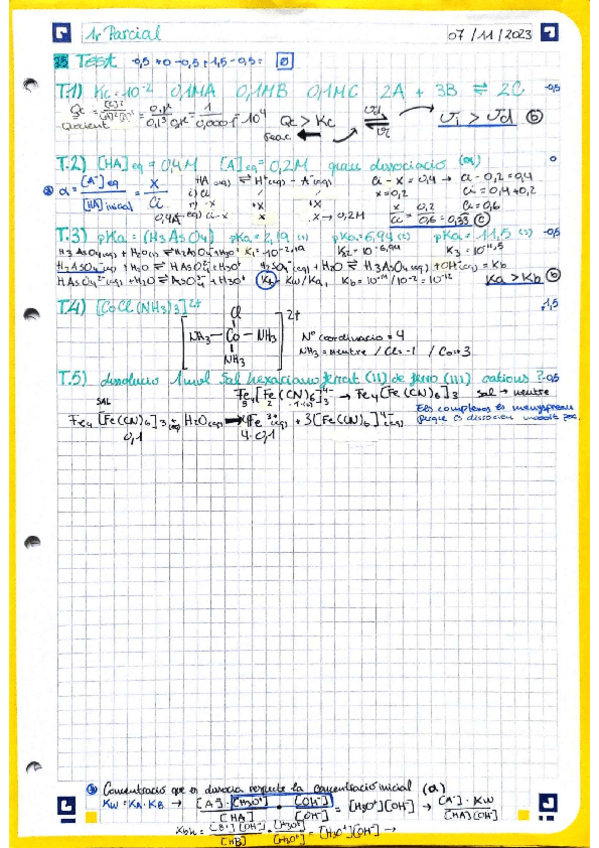 1r Parcial 07/11/2023
Test -0,5 +0 -0,5 +1,5 -0,5 = 0
T.1) Kc = 10⁻² 0,1M A 0,1M B 0,1M C 2A + 3B ⇌ 2C -0,5
Qc = [C]²/[A]²[B]³ = 0,1²/0,1³ 0,1² = 1/0,0001 = 10⁴ Qc > Kc Vi > Vd b
Quocient reac ←
T.2) [HA]eq = 0,4M [A⁻]eq = 0,2M grau dissociació (α) 0
α = [A⁻]eq/[HA]inicial = x/Ci HA(aq) ⇌ H⁺(aq) + A⁻(aq) Ci - x = 0,4 → Ci - 0,2 = 0,4
i) Ci / / x = 0,2 Ci = 0,4 + 0,2
r) -x +x +x Ci = 0,6
0,4M eq) Ci-x x x → 0,2M x/Ci = 0,2/0,6 = 0,33 c
T.3) pKa = (H3AsO4) pKa = 2,19 (1) pKa = 6,94 (2) pKa = 11,5 (3) -0,5
H3AsO4(aq) + H2O(l) ⇌ H2AsO4⁻ + H3O⁺ K1 = 10⁻²,¹⁹ K2 = 10⁻⁶,⁹⁴ K3 = 10⁻¹¹,⁵
H2AsO4⁻(aq) + H2O ⇌ HAsO4²⁻ + H3O⁺ H2AsO4⁻(aq) + H2O ⇌ H3AsO4(aq) + OH⁻(aq) = Kb
HAsO4²⁻(aq) + H2O ⇌ AsO4³⁻ + H3O⁺ Kb = Kw/Ka1 Kb = 10⁻¹⁴/10⁻² = 10⁻¹² Ka > Kb b
T.4) [CoCl(NH3)3]²⁺ 1,5
Cl 2+
NH3 — Co — NH3 Nº coordinació = 4
NH3 NH3 = neutre / Cl = -1 / Co = +3
T.5) dissolució 1 mol Sal hexacianoferrat (II) de ferro (III) cations? -0,5
SAL Fe4[Fe(CN)6]3 → Fe4[Fe(CN)6]3 sal → neutre
Fe4[Fe(CN)6]3 (aq) + H2O(aq) → 4Fe³⁺(aq) + 3[Fe(CN)6]⁴⁻(aq) Els complexos es menyspreen
0,1 4·0,1 perquè es dissocien molt poc.
Concentració que es dissocia respecte la concentració inicial (α)
Kw = KA·KB → [A⁻]·[H3O⁺]/[HA] · [OH⁻]/[OH⁻] = [H3O⁺][OH⁻] → [A⁻]·Kw/[HA][OH⁻]
[B⁺][OH⁻]/[B] · [H3O⁺]/[H3O⁺] = [H3O⁺][OH⁻] →